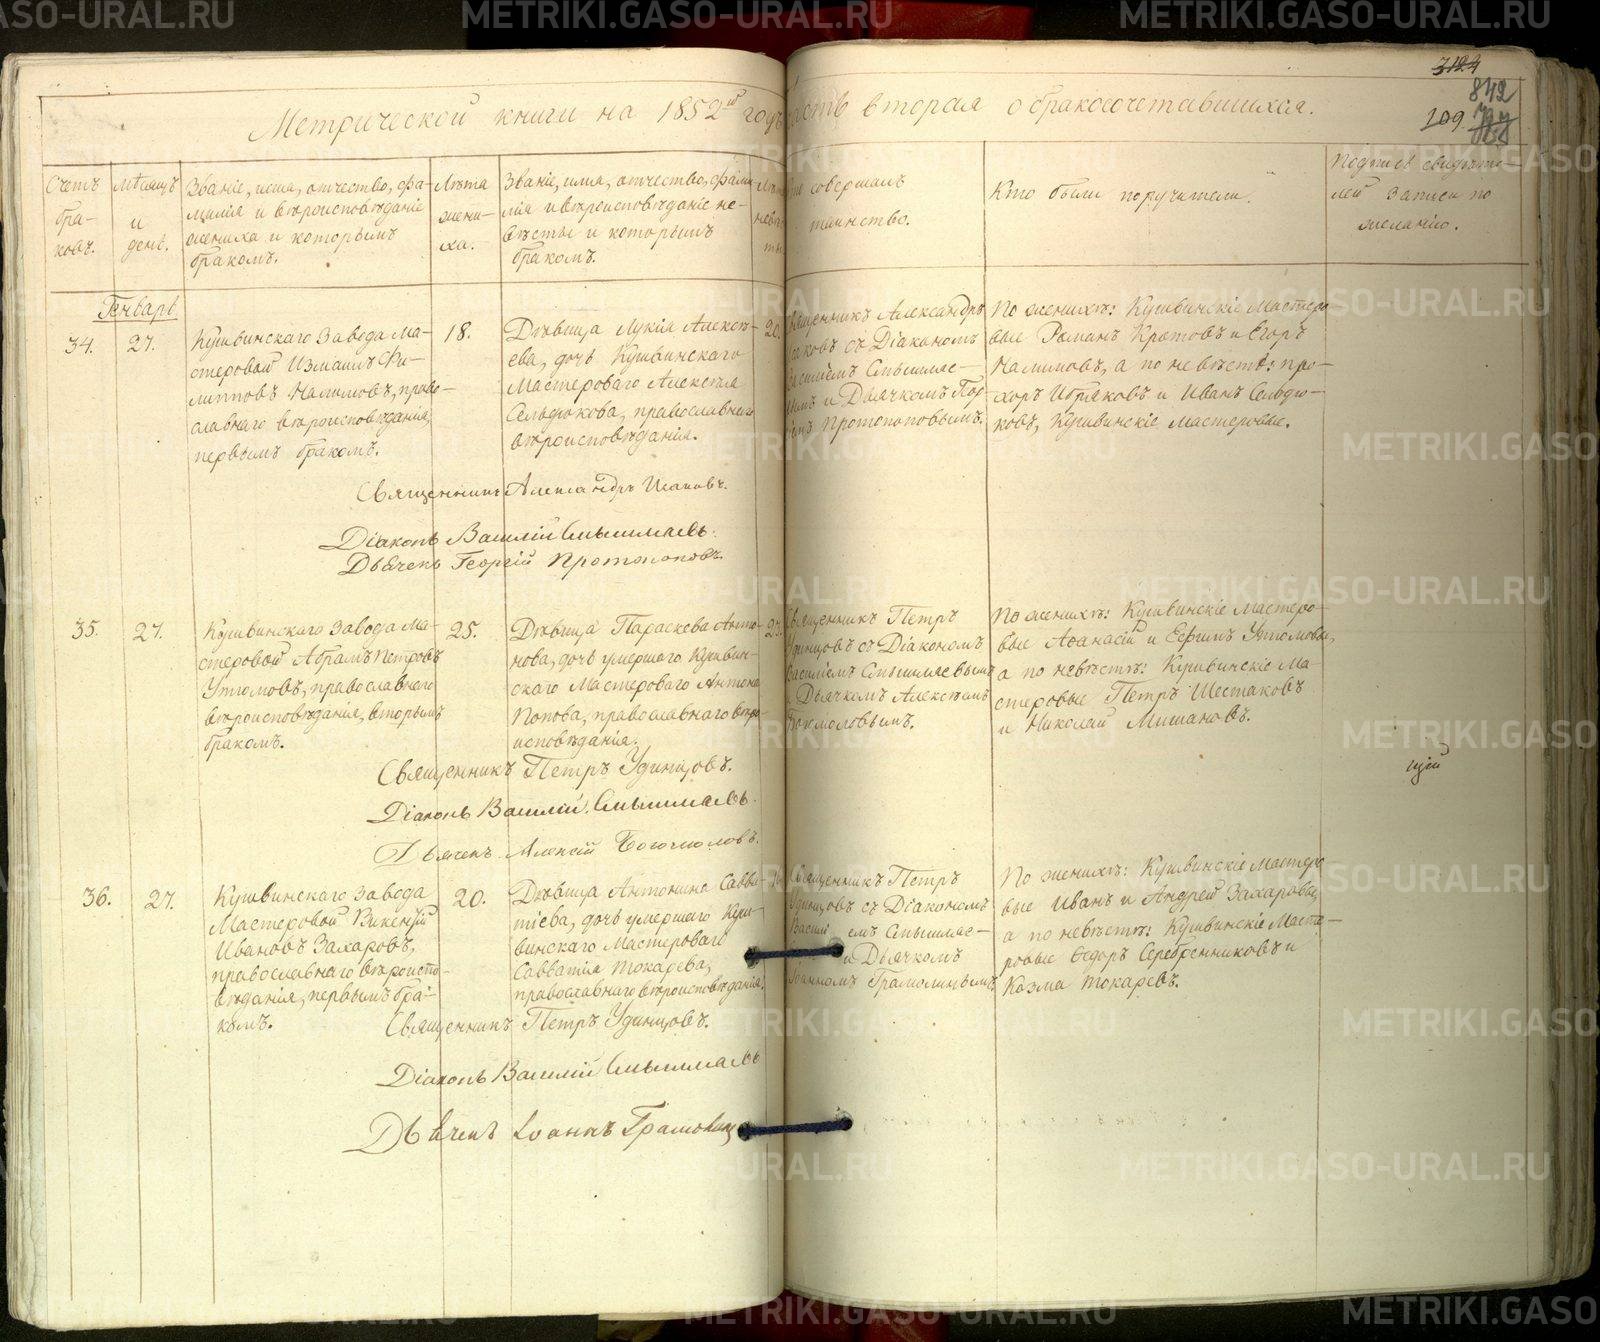 METRIKI.GASO-URAL.RU
Метрической книги на 1852й годъ часть вторая о бракосочетавшихся.
3124
842
109.
Счетъ бра-ковъ.
Мѣсяцъ и день.
Званіе, имя, отчество, фа-
милія и вѣроисповѣданіе
жениха и которымъ
бракомъ.
Лѣта жени-ха.
Званіе, имя, отчество, фами-
лія и вѣроисповѣданіе не-
вѣсты и которымъ
бракомъ.
совершалъ
таинство.
Кто были поручители.
Подписи свидѣте-
лей записи по
желанію.
Генварь
34.
27.
Кушвинскаго Завода Ма-
стеровой Измаилъ Фи-
липповъ Налимовъ, право-
славнаго вѣроисповѣданія,
первымъ бракомъ.
18.
Дѣвица Лукія Алексѣ-
ева, дочь Кушвинскаго
Мастероваго Алексѣя
Сельдюкова, православнаго
вѣроисповѣданія.
20.
Священникъ Александръ
Исаковъ съ Діакономъ
Василіемъ Смышляе-
вымъ и Дьячкомъ
Протопоповымъ.
По женихѣ: Кушвинскіе Мастеро-
вые Романъ Кротовъ и Егоръ
Налимовъ, а по невѣстѣ: Про-
хоръ Ибряковъ и Иванъ Сельдю-
ковъ, Кушвинскіе мастеровые.
Священникъ Александръ Исаковъ.
Діаконъ Василій Смышляевъ.
Дьячекъ Георгій Протопоповъ.
35.
27.
Кушвинскаго Завода Ма-
стеровой Абрамъ Петровъ
Утюмовъ, православнаго
вѣроисповѣданія, вторымъ
бракомъ.
25.
Дѣвица Параскева Анто-
нова, дочь умершаго Кушвин-
скаго Мастероваго Антона
Попова, православнаго вѣро-
исповѣданія.
Священникъ Петръ
Удинцовъ съ Діакономъ
Василіемъ Смышляевымъ
и Дьячкомъ Алексѣемъ
Богомоловымъ.
По женихѣ: Кушвинскіе Мастеро-
вые Аѳанасій и Ефимъ Утюмовы,
а по невѣстѣ: Кушвинскіе Ма-
стеровые Петръ Шестаковъ
и Николай Мишановъ.
Священникъ Петръ Удинцовъ.
Діаконъ Василій Смышляевъ.
Дьячекъ Алексій Богомоловъ.
щій
36.
27.
Кушвинскаго Завода
Мастеровой Викентій
Ивановъ Захаровъ,
православнаго вѣроиспо-
вѣданія, первымъ бра-
комъ.
20.
Дѣвица Антонина Савва-
тіева, дочь умершаго Куш-
винскаго Мастероваго
Савватія Токарева,
православнаго вѣроисповѣданія.
Священникъ Петръ
Удинцовъ съ Діакономъ
Василіемъ Смышляе-
и Дьячкомъ
Іоанномъ Грамолинымъ
По женихѣ: Кушвинскіе Мастеро-
вые Иванъ и Андрей Захаровы,
а по невѣстѣ: Кушвинскіе Масте-
ровые Ѳедоръ Серебренниковъ и
Козма Токаревъ.
Священникъ Петръ Удинцовъ.
Діаконъ Василій Смышляевъ
Дьячекъ Іоаннъ Грамолинъ